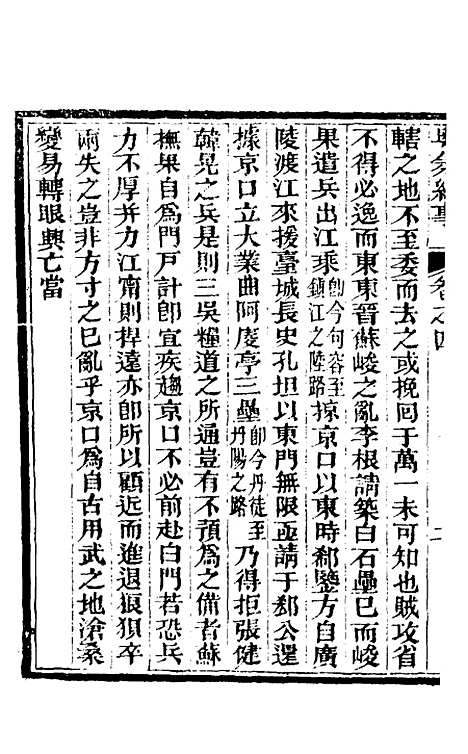 轄之地不至委而去之或挽回于萬一未可知也賊攻省
不得必逸而東東晉蘇峻之亂李根請築白石壘已而峻
果遣兵出江乘即今句容至鎮江之陸路掠京口以東時郗鑒方自廣
陵渡江來援臺城長史孔坦以東門無限亟請于郗公還
據京口立大業曲阿庱亭三壘即今丹徒至丹陽之路乃得拒張健
韓晃之兵是則三吳糧道之所通豈有不預為之備者蘇
撫果自為門戸計卽宜疾趨京口不必前赴白門若恐兵
力不厚并力江甯則捍遠亦卽所以顧近而進退狼狽卒
兩失之豈非方寸之已亂乎京口為自古用武之地滄桑
變易轉眼興亡當
卷之四
二